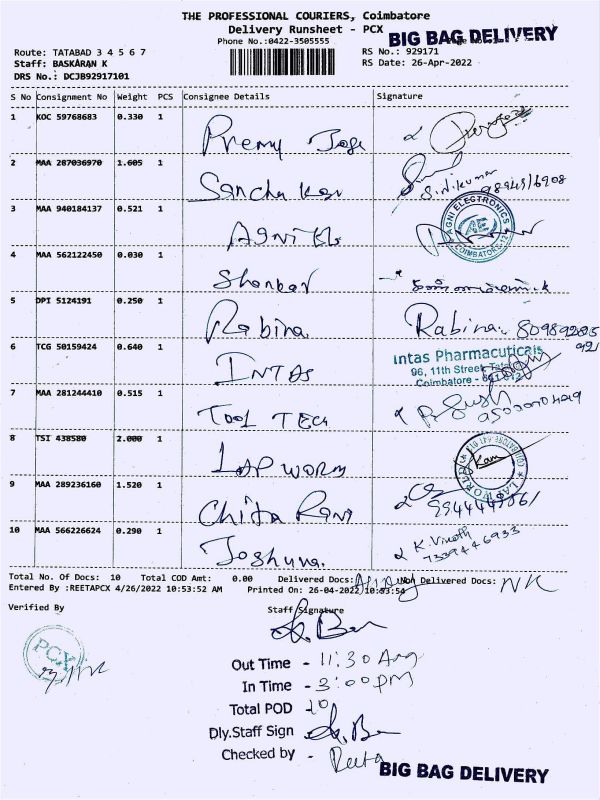 THE PROFESSIONAL COURIERS, Coimbatore
Delivery Runsheet - PCX
BIG BAG DELIVERY
Phone No.:0422-3505555
Route: TATABAD 3 4 5 6 7
RS No.: 929171
Staff: BASKARAN K
RS Date: 26-Apr-2022
DRS No.: DCJB92917101
S No Consignment No Weight PCS Consignee Details Signature
1 KOC 59768683 0.330 1 Premy Jose
2 MAA 287036970 1.605 1
Sirikumar
3 MAA 940184137 0.521 1 AGNI
AGNI ELECTRONICS
AE
COIMBATORE-12
4 MAA 562122450 0.030 1 Shankar
5 DPI 5124191 0.250 1 Rabina Rabina
6 TCG 50159424 0.640 1 INTAS
Intas Pharmacuticals
96, 11th Street
Coimbatore - 641 012
7 MAA 281244410 0.515 1 TOOL TECH
8 TSI 438580 2.000 1 LAP WORLD
LAP WORLD
9 MAA 289236160 1.520 1 Chitra Rani
10 MAA 566226624 0.290 1 Joshuva.
K. Vinoth
7339446933
Total No. Of Docs: 10 Total COD Amt: 0.00 Delivered Docs: Non Delivered Docs: NK
Entered By :REETAPCX 4/26/2022 10:53:52 AM Printed On: 26-04-2022 10:53:54
Verified By Staff Signature
PCX
Out Time - 11:30 Am
In Time - 3:00 pm
Total POD 20
Dly.Staff Sign
Checked by - Reeta
BIG BAG DELIVERY